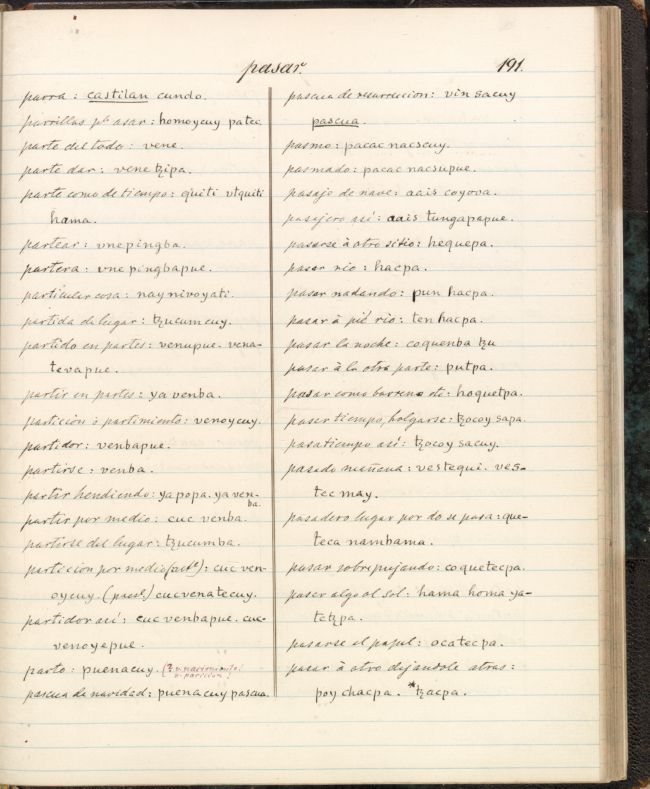 pasar. 191.
parra: castilan cundo.
parrillas pª asar: homoycuy patec
parte del todo: vene.
parte dar: vene tzipa.
parte como de tiempo: quiti vtquiti
hama.
partear: vnepingba.
partera: vne pingbapue.
particular cosa: nay nivoyati.
partida de lugar: tzucumcuy.
partido en partes: venupue. vena-
tevapue.
partir en partes: ya venba.
particion ò partimiento: venoycuy.
partidor: venbapue.
partirse: venba.
partir hendiendo: ya popa. ya ven-
ba.
partir por medio: cuc venba.
partirse del lugar: tzucumba.
particion por medio (act.ª): cuc ven-
oycuy. (pas.ª) cucvenatecuy.
partidor así: cuc venbapue. cuc-
venoyepue.
parto: puenacuy. (? v. nacimiento!
v. partido!
pascua de navidad: puenacuy pascua.
pascua de resurreccion: vin sacuy
pascua.
pasmo: pacac nacscuy.
pasmado: pacac nacsupue.
pasaje de nave: aais coyova.
pasajero así: aais tungapapue.
pasarse à otro sitio: hequepa.
pasar rio: hacpa.
pasar nadando: pun hacpa.
pasar à pié rio: ten hacpa.
pasar la noche: coquenba tzu
pasar à la otra parte: putpa.
pasar como barreno etc: hoquetpa.
pasar tiempo, holgarse: tzocoy sapa.
pasatiempo así: tzocoy sacuy.
pasado mañana: vestequi. ves-
tec may.
pasadero lugar por do se pasa: que-
teca nambama.
pasar sobrepujando: coquetecpa.
pasar algo al sol: hama homa ya-
tetzpa.
pasarse el papel: ocatecpa.
pasar à otro dejandole atras:
poy chacpa. *tzacpa.